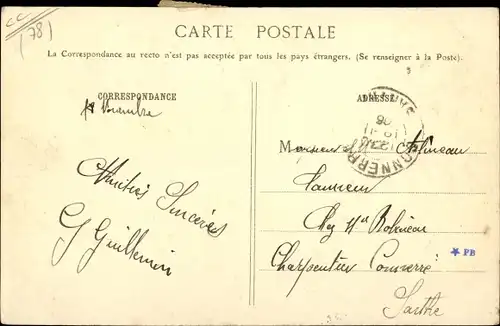 CC
(78)
CARTE POSTALE
La Correspondance au recto n'est pas acceptée par tous les pays étrangers. (Se renseigner à la Poste).
CORRESPONDANCE
ADRESSE
Novembre
Amitiés Sincères
G Guillemin
Monsieur
Chez Mr
Charpentier Connerré
Sarthe
★ PB